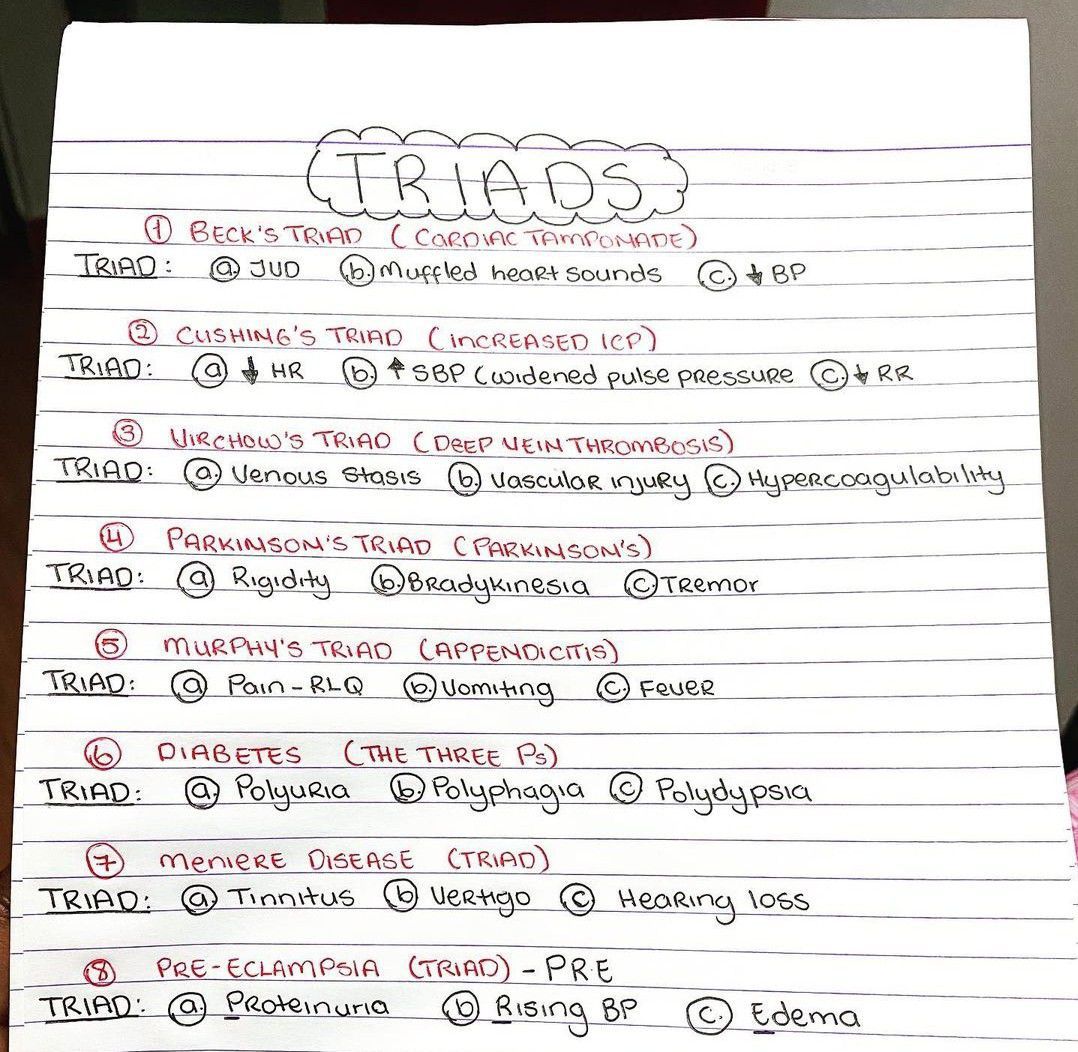 TRIADS
① BECK'S TRIAD (CARDIAC TAMPONADE)
TRIAD: ⓐ JVD ⓑ Muffled heart sounds ⓒ ↓ BP
② CUSHING'S TRIAD (INCREASED ICP)
TRIAD: ⓐ ↓ HR ⓑ ↑ SBP (widened pulse pressure ⓒ ↓ RR
③ VIRCHOW'S TRIAD (DEEP VEIN THROMBOSIS)
TRIAD: ⓐ Venous stasis ⓑ vascular injury ⓒ Hypercoagulability
④ PARKINSON'S TRIAD (PARKINSON'S)
TRIAD: ⓐ Rigidity ⓑ Bradykinesia ⓒ Tremor
⑤ MURPHY'S TRIAD (APPENDICITIS)
TRIAD: ⓐ Pain - RLQ ⓑ Vomiting ⓒ Fever
⑥ DIABETES (THE THREE Ps)
TRIAD: ⓐ Polyuria ⓑ Polyphagia ⓒ Polydypsia
⑦ MENIERE DISEASE (TRIAD)
TRIAD: ⓐ Tinnitus ⓑ Vertigo ⓒ Hearing loss
⑧ PRE-ECLAMPSIA (TRIAD) - PRE
TRIAD: ⓐ Proteinuria ⓑ Rising BP ⓒ Edema